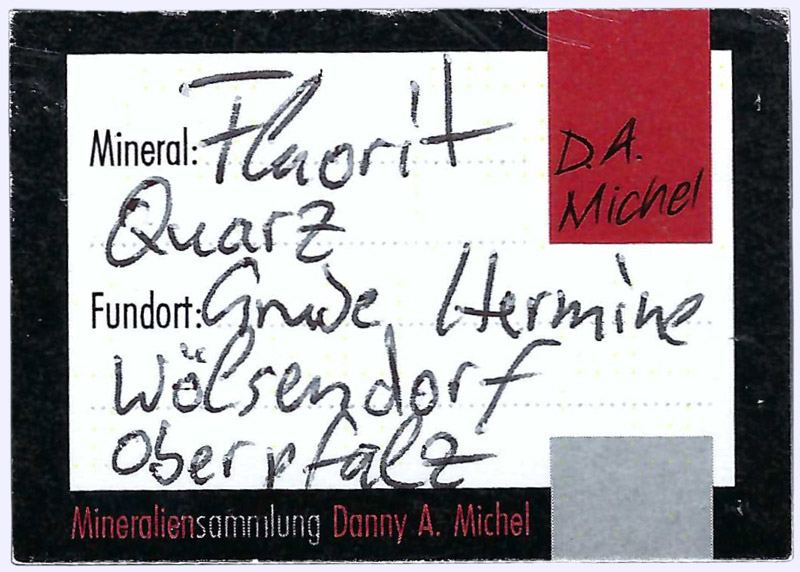 Mineral: Fluorit
Quarz
Fundort: Grube Hermine
Wölsendorf
Oberpfalz
D.A.
Michel
Mineraliensammlung Danny A. Michel